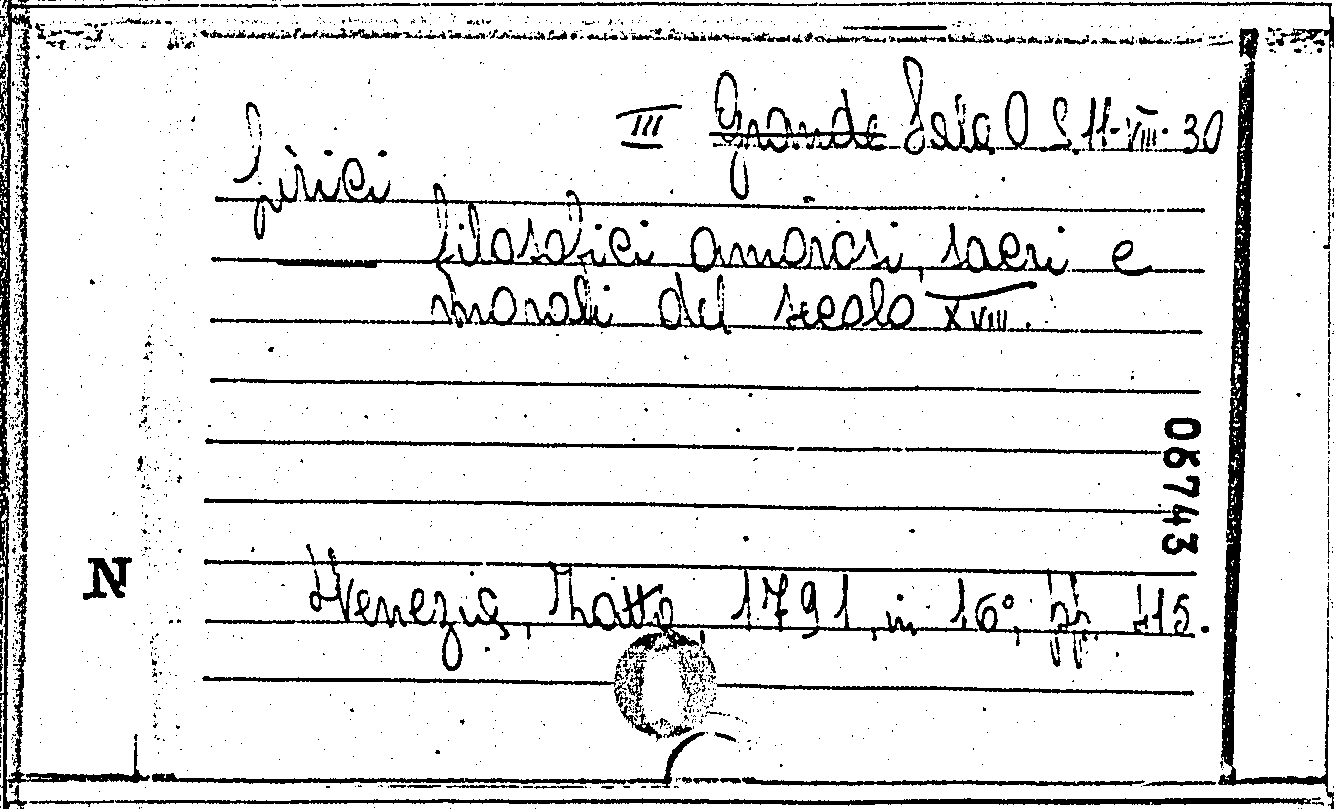 III Grande Sala O S. 11-VIII-30
Lirici
filosofici amorosi, sacri e
morali del secolo XVIII.
06743
N
Venezia, Zatta, 1791, in 16°, pp. 415.